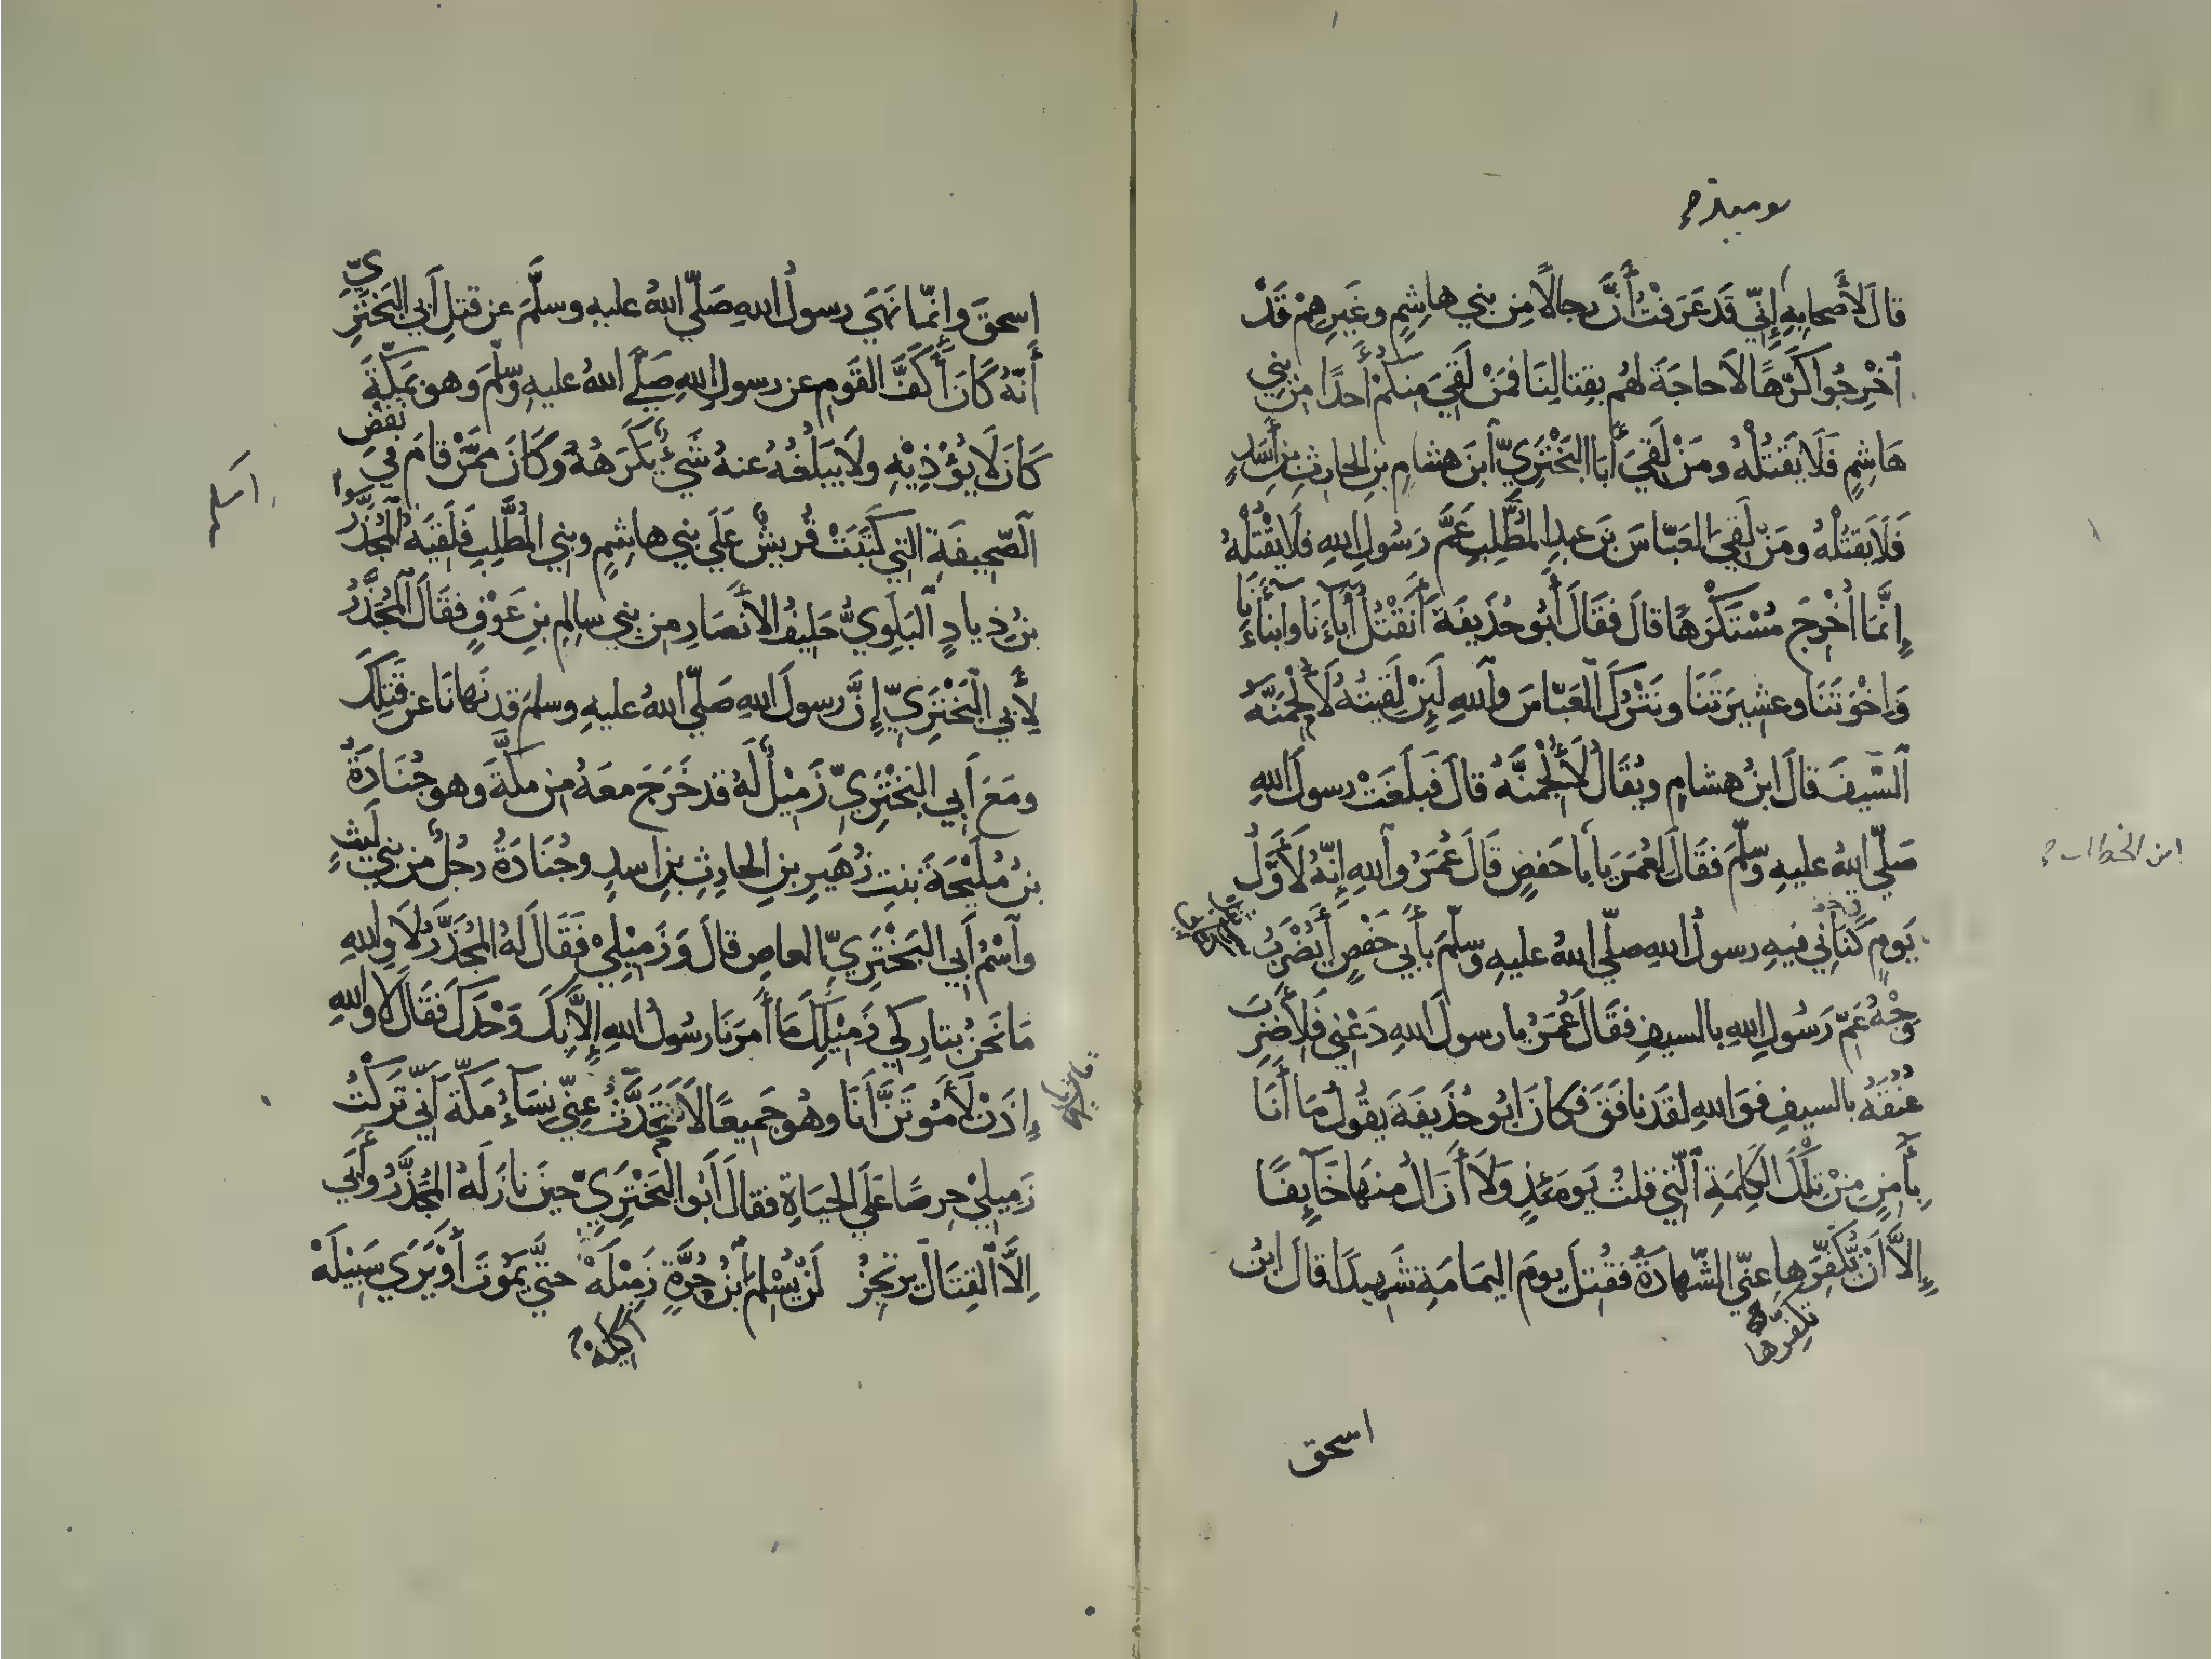 يومئذ
قالَ لأَصحابِهِ إنّي قَد عَرَفْتُ أَنَّ رِجالًا مِن بني هاشِمٍ وغَيرِهِمْ قَدْ
أُخْرِجُوا كَرْهًا لاَ حاجَةَ لهُم بِقتالِنَا فمَنْ لَقِيَ مِنكمْ أَحدًا مِن بني
هَاشِمٍ فَلَا يَقتُلْهُ ومَنْ لَقِيَ أَبَا البَخْتَرِيّ ابنَ هشامِ بنِ الحارثِ بنِ أَسَدٍ
فَلَا يَقتُلْهُ ومَنْ لَقِيَ العَبّاسَ بنَ عبدِ المُطَّلِبِ عَمَّ رَسُولِ اللهِ فلَا يَقْتُلْهُ
إِنَّمَا أُخْرِجَ مُسْتَكْرَهًا قالَ فقَالَ أَبُو حُذَيفَةَ أَنَقْتُلُ أَبآءَنَا وأبنآءَنَا
وَإخْوَتَنَا وعشِيرَتَنَا ونَتْرُكَ العَبّاسَ واللهِ لَئِنْ لَقِيتُهُ لَأُلْحِمَنَّهُ
السَّيفَ قالَ ابنُ هشامٍ ويُقَالُ لَأُلْجِمَنَّهُ قالَ فَبلَغَتْ رسولَ اللهِ
صَلّي اللهُ عليهِ وسلَّمَ فقَالَ لعُمَرَ يا با حَفصٍ قَالَ عُمَرُ واللهِ إنّهُ لَأَوَّلُ
ابن الخطاب
يَومٍ كَنَّانِي فيهِ رسولُ اللهِ صلّي اللهُ عليهِ وسلّمَ بأَبي حَفْصٍ أَيُضْرَبُ
وَجْهُ عَمّ رَسُولِ اللهِ بالسيفِ فقَالَ عُمَرُ يا رسولَ اللهِ دَعْنِي فَلأَضْرِبَ
عُنُقَهُ بالسيفِ فوَاللهِ لقَد نافَقَ فكانَ ابُو حُذَيفَةَ يقُولُ مَا أَنَا
بآمِنٍ مِنْ تِلْكَ الكَلِمَةِ الّتي قلتُ يَومَئذٍ وَلَا أَزَالُ مِنهَا خَآيِفًا
إِلاَّ أَنْ تُكَفِّرَها عنّي الشّهادَةُ فقُتِلَ يومَ اليمَامَةِ شَهِيدًا قالَ ابنُ
تكفرها
اسحق
إسحقَ وإنّما نَهَي رسولُ اللهِ صَلّي اللهُ عليهِ وسلَّمَ عن قتلِ أَبي البَخْتَرِيّ
أَنّهُ كَانَ أَكَفَّ القَومِ عن رسولِ اللهِ صَلَّي اللهُ عليهِ وسلّمَ وهو بمَكّةَ
كَانَ لَا يُؤْذِيْهِ ولَا يَبلُغُهُ عنهُ شَيءٌ يَكرَهُهُ وكَانَ ممَّنْ قامَ في نَقْضِ
الصّحِيفَةِ التي كَتَبَتْ قُريشٌ عَلَي بني هاشِمٍ وبني المُطَّلِبِ فَلَقِيَهُ المُجَذَّرُ
بنُ ذِيادٍ البَلَوِيُّ حَلِيفُ الأنصَارِ مِن بني سالِمِ بنِ عَوْفٍ فقَالَ المُجَذَّرُ
لِأَبي البَخْتَرِيّ إِنَّ رسولَ اللهِ صَلّي اللهُ عليهِ وسلمَ قد نَهانَا عن قَتلِكَ
ومَعَ أَبي البَخْتَرِيّ زَمِيْلٌ لَهُ قد خَرَجَ معَهُ مِن مكّةَ وهو جُنَادَةُ
بنُ مُلَيْحَةَ بنتِ زُهَيرِ بنِ الحارِثِ بنِ اسدٍ وجُنَادَةُ رجُلٌ مِن بني لَيثٍ
واسْمُ أَبي البَخْتَرِيّ العاصِ قالَ وَزَمِيْلِي فَقَالَ لَهُ المُجَذَّرُ لَا واللهِ
مَا نَحنُ بتارِكي زَمِيْلِكَ مَا أَمَرَنَا رسُولُ اللهِ إِلاَّ بِكَ وَحْدَكَ فقَالَ لا واللهِ
إِذَنْ لَأَمُوتَنَّ أَنَا وهُو جَميعًا لَا تَتَحَدَّثُ عنّي نِسَآءُ مَكّةَ أَنّي تَرَكْتُ
زَمِيلِي حِرصًا عَلَي الحيَاةِ فقالَ أَبُو البَخْتَرِيّ حينَ نازَلَهُ المُجَذَّرُ وأَبَي
إِلَّا القِتَالَ يرتَجِزُ لَنْ يُسْلِمَ ابْنُ حُرَّةٍ زَمِيْلَهْ حتّي يَمُوتَ أَوْ يَرَي سَبِيْلَهْ
أكيله